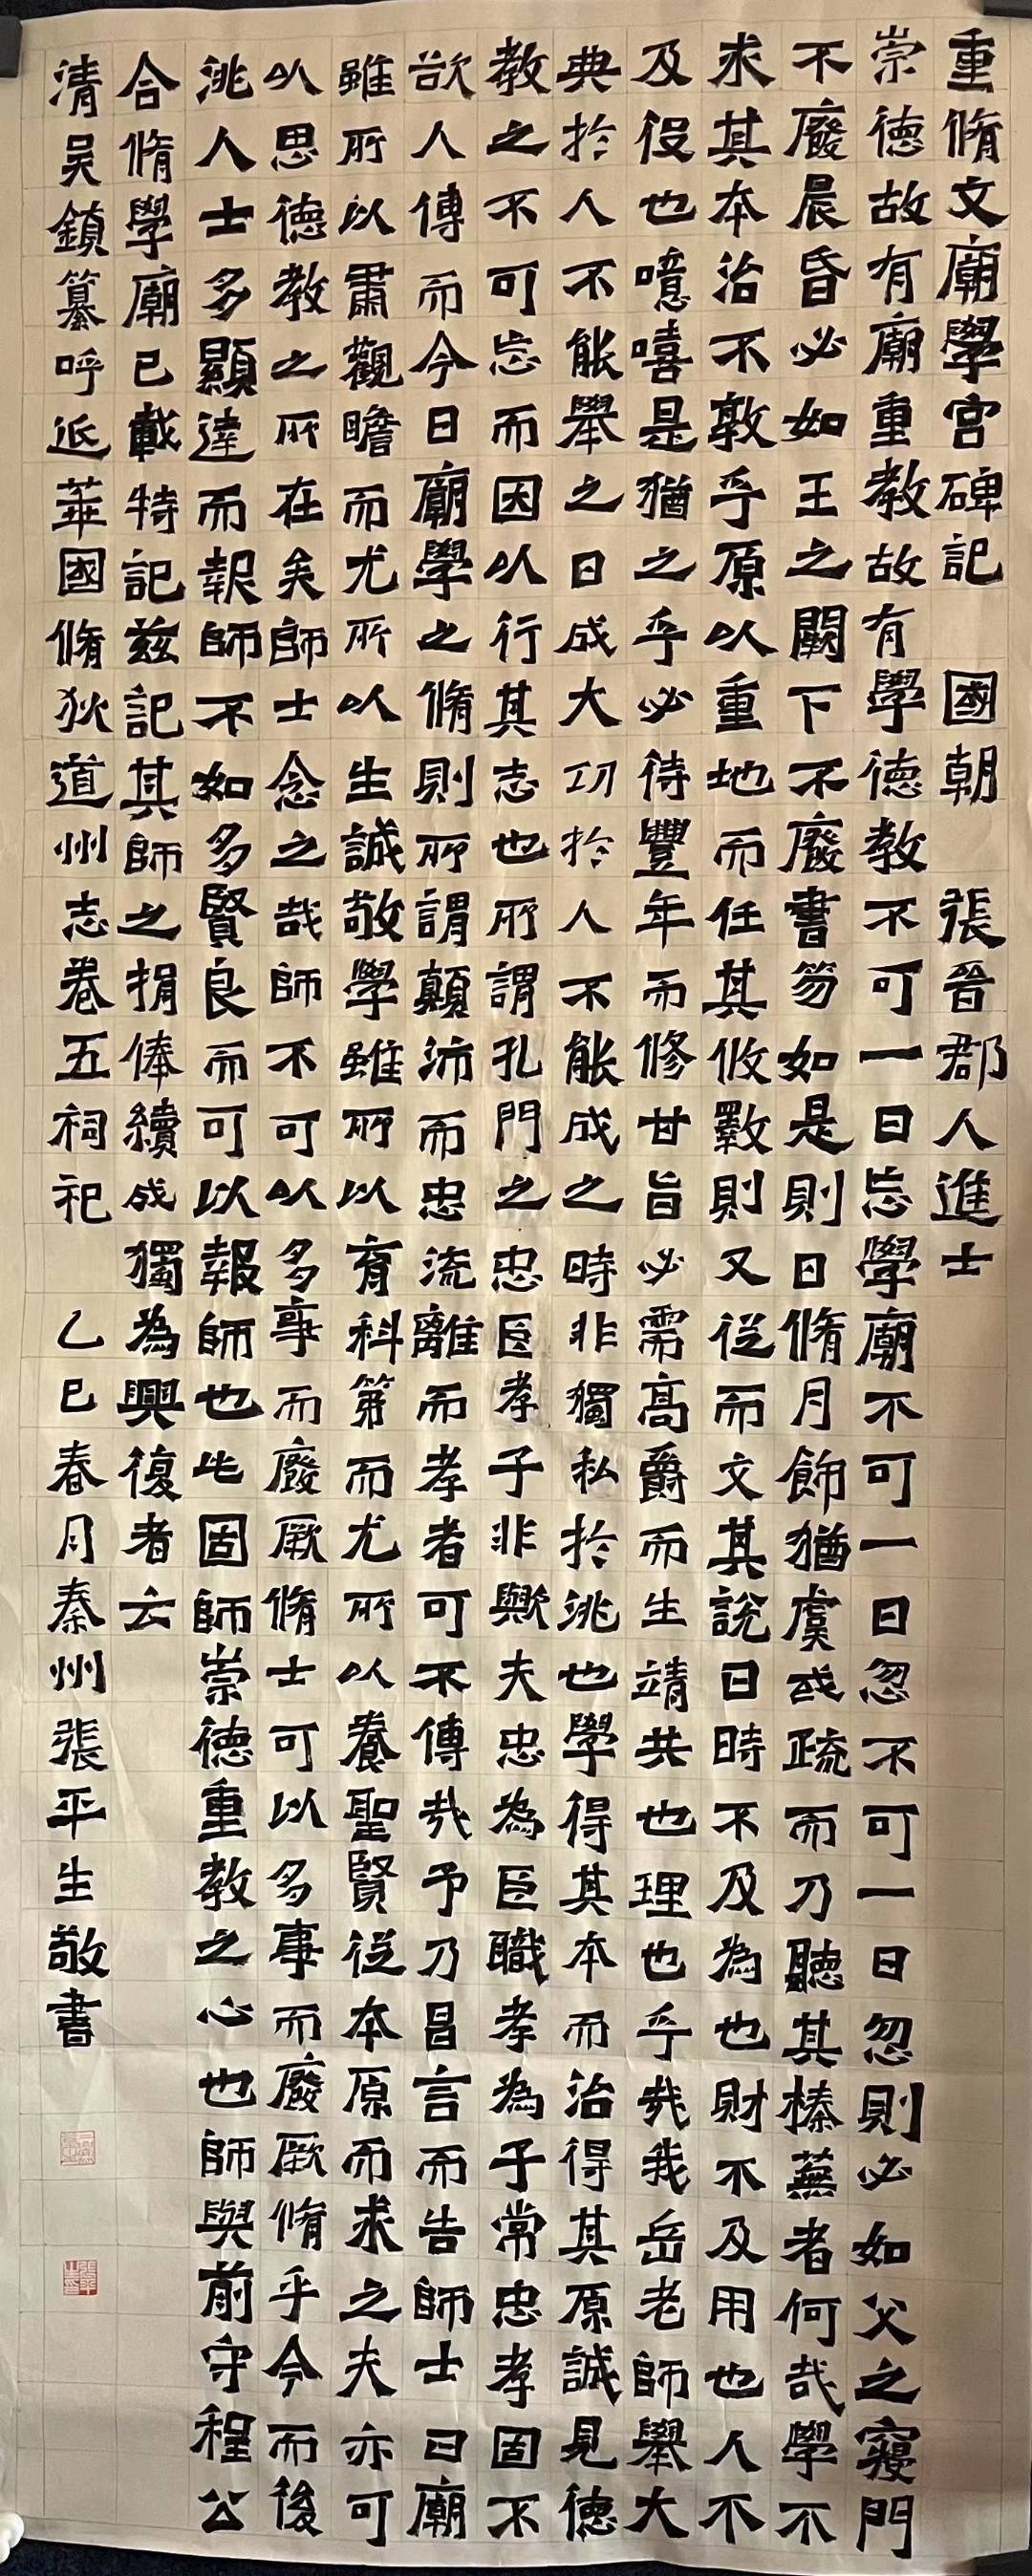 重脩文廟學宮碑記 國朝 張晉郡人進士
崇德故有廟重教故有學德教不可一日忘學廟不可一日忽不可一日忽則必如父之寢門
不廢晨昏必如王之闕下不廢書笏如是則日脩月飾猶虞或疏而乃聽其榛蕪者何哉學不
求其本治不敦乎原以重地而任其攸斁則又從而文其說曰時不及為也財不及用也人不
及役也噫嘻是猶之乎必待豐年而修甘旨必需高爵而生靖共也理也乎哉我岳老師舉大
典於人不能舉之日成大功於人不能成之時非獨私於洮也學得其本而治得其原誠見德
教之不可忘而因以行其志也所謂孔門之忠臣孝子非歟夫忠為臣職孝為子常忠孝固不
欲人傳而今日廟學之脩則所謂顛沛而忠流離而孝者可不傳哉予乃昌言而告師士曰廟
雖所以肅觀瞻而尤所以生誠敬學雖所以育科第而尤所以養聖賢從本原而求之夫亦可
以思德教之所在矣師士念之哉師不可以多事而廢厥脩士可以多事而廢厥脩乎今而後
洮人士多顯達而報師不如多賢良而可以報師也此固師崇德重教之心也師與前守程公
合脩學廟已載特記茲記其師之捐俸續成獨為興復者云
清吳鎮纂呼延華國脩狄道州志卷五祠祀 乙巳春月秦州張平生敬書